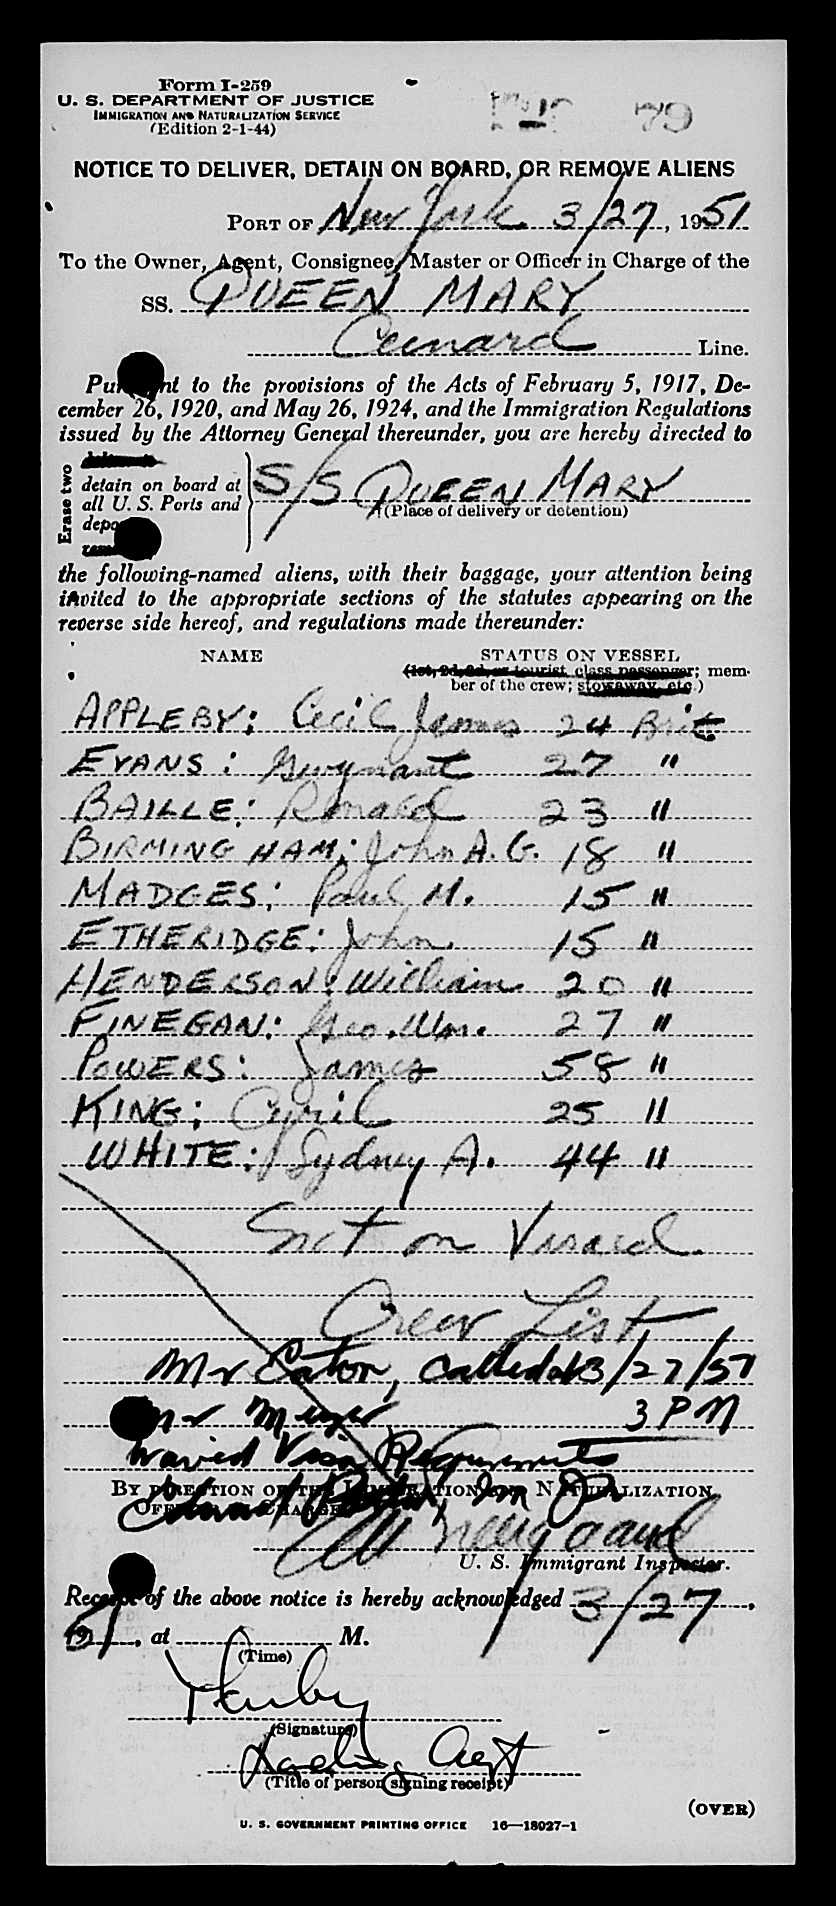 Form I-259
U. S. DEPARTMENT OF JUSTICE
IMMIGRATION AND NATURALIZATION SERVICE
(Edition 2-1-44)
79
NOTICE TO DELIVER, DETAIN ON BOARD, OR REMOVE ALIENS
PORT OF New York 3/27, 1951
To the Owner, Agent, Consignee, Master or Officer in Charge of the
SS. QUEEN MARY
Cunard Line.
Pursuant to the provisions of the Acts of February 5, 1917, De-
cember 26, 1920, and May 26, 1924, and the Immigration Regulations
issued by the Attorney General thereunder, you are hereby directed to
Erase two
detain on board at
all U. S. Ports and
S/S QUEEN MARY
(Place of delivery or detention)
the following-named aliens, with their baggage, your attention being
invited to the appropriate sections of the statutes appearing on the
reverse side hereof, and regulations made thereunder:
NAME STATUS ON VESSEL
(1st, 2d, 3d, or tourist class passenger; mem-
ber of the crew; stowaway, etc.)
APPLEBY: Cecil James 24 Brit
EVANS: Gwynant 27 "
BAILLE: Ronald 23 "
BIRMINGHAM: John A. G. 18 "
MADGES: Paul M. 15 "
ETHERIDGE: John 15 "
HENDERSON: William 20 "
FINEGAN: Geo. Wm. 27 "
POWERS: James 58 "
KING: Cyril 25 "
WHITE: Sydney A. 44 "
Not on Visaed
Crew List
Mr Eaton, called at 3/27/51
Mr 3 PM
Waived Visa Requirements
BY DIRECTION OF THE IMMIGRATION AND NATURALIZATION
OFFICER IN CHARGE
U. S. Immigrant Inspector.
Receipt of the above notice is hereby acknowledged 3/27,
1951, at M.
(Time)
(Signature)
Landing Agt
(Title of person signing receipt)
(OVER)
U. S. GOVERNMENT PRINTING OFFICE 16—18027-1